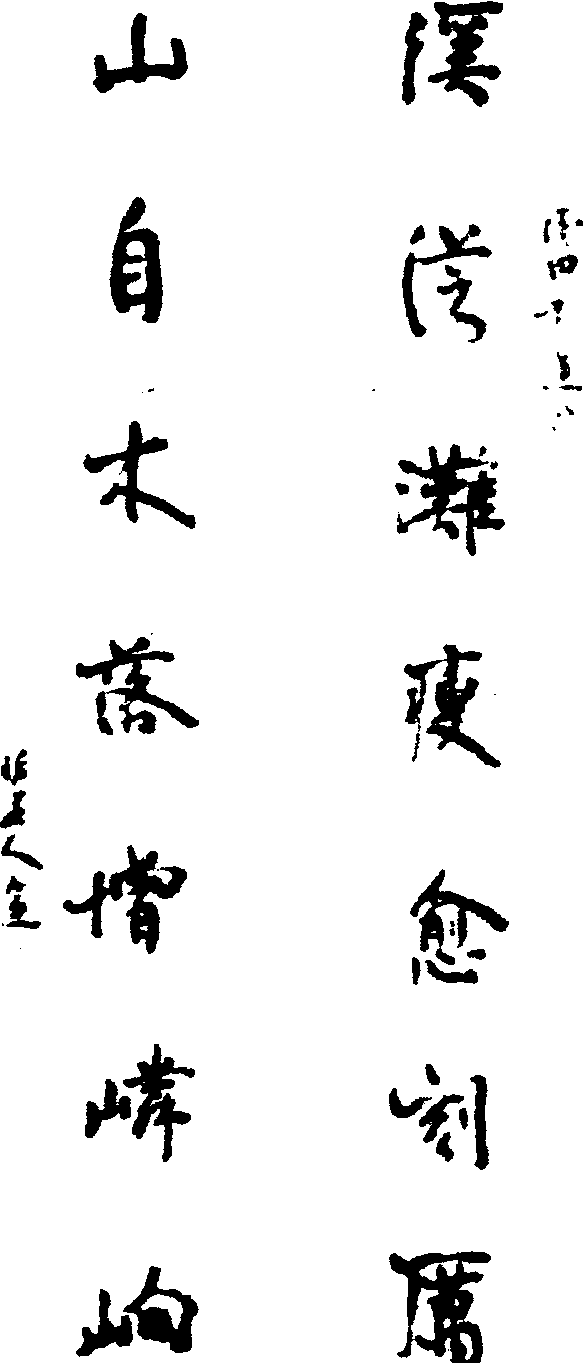 溪從灘瘦愈刻厲
山自木落增嶙峋